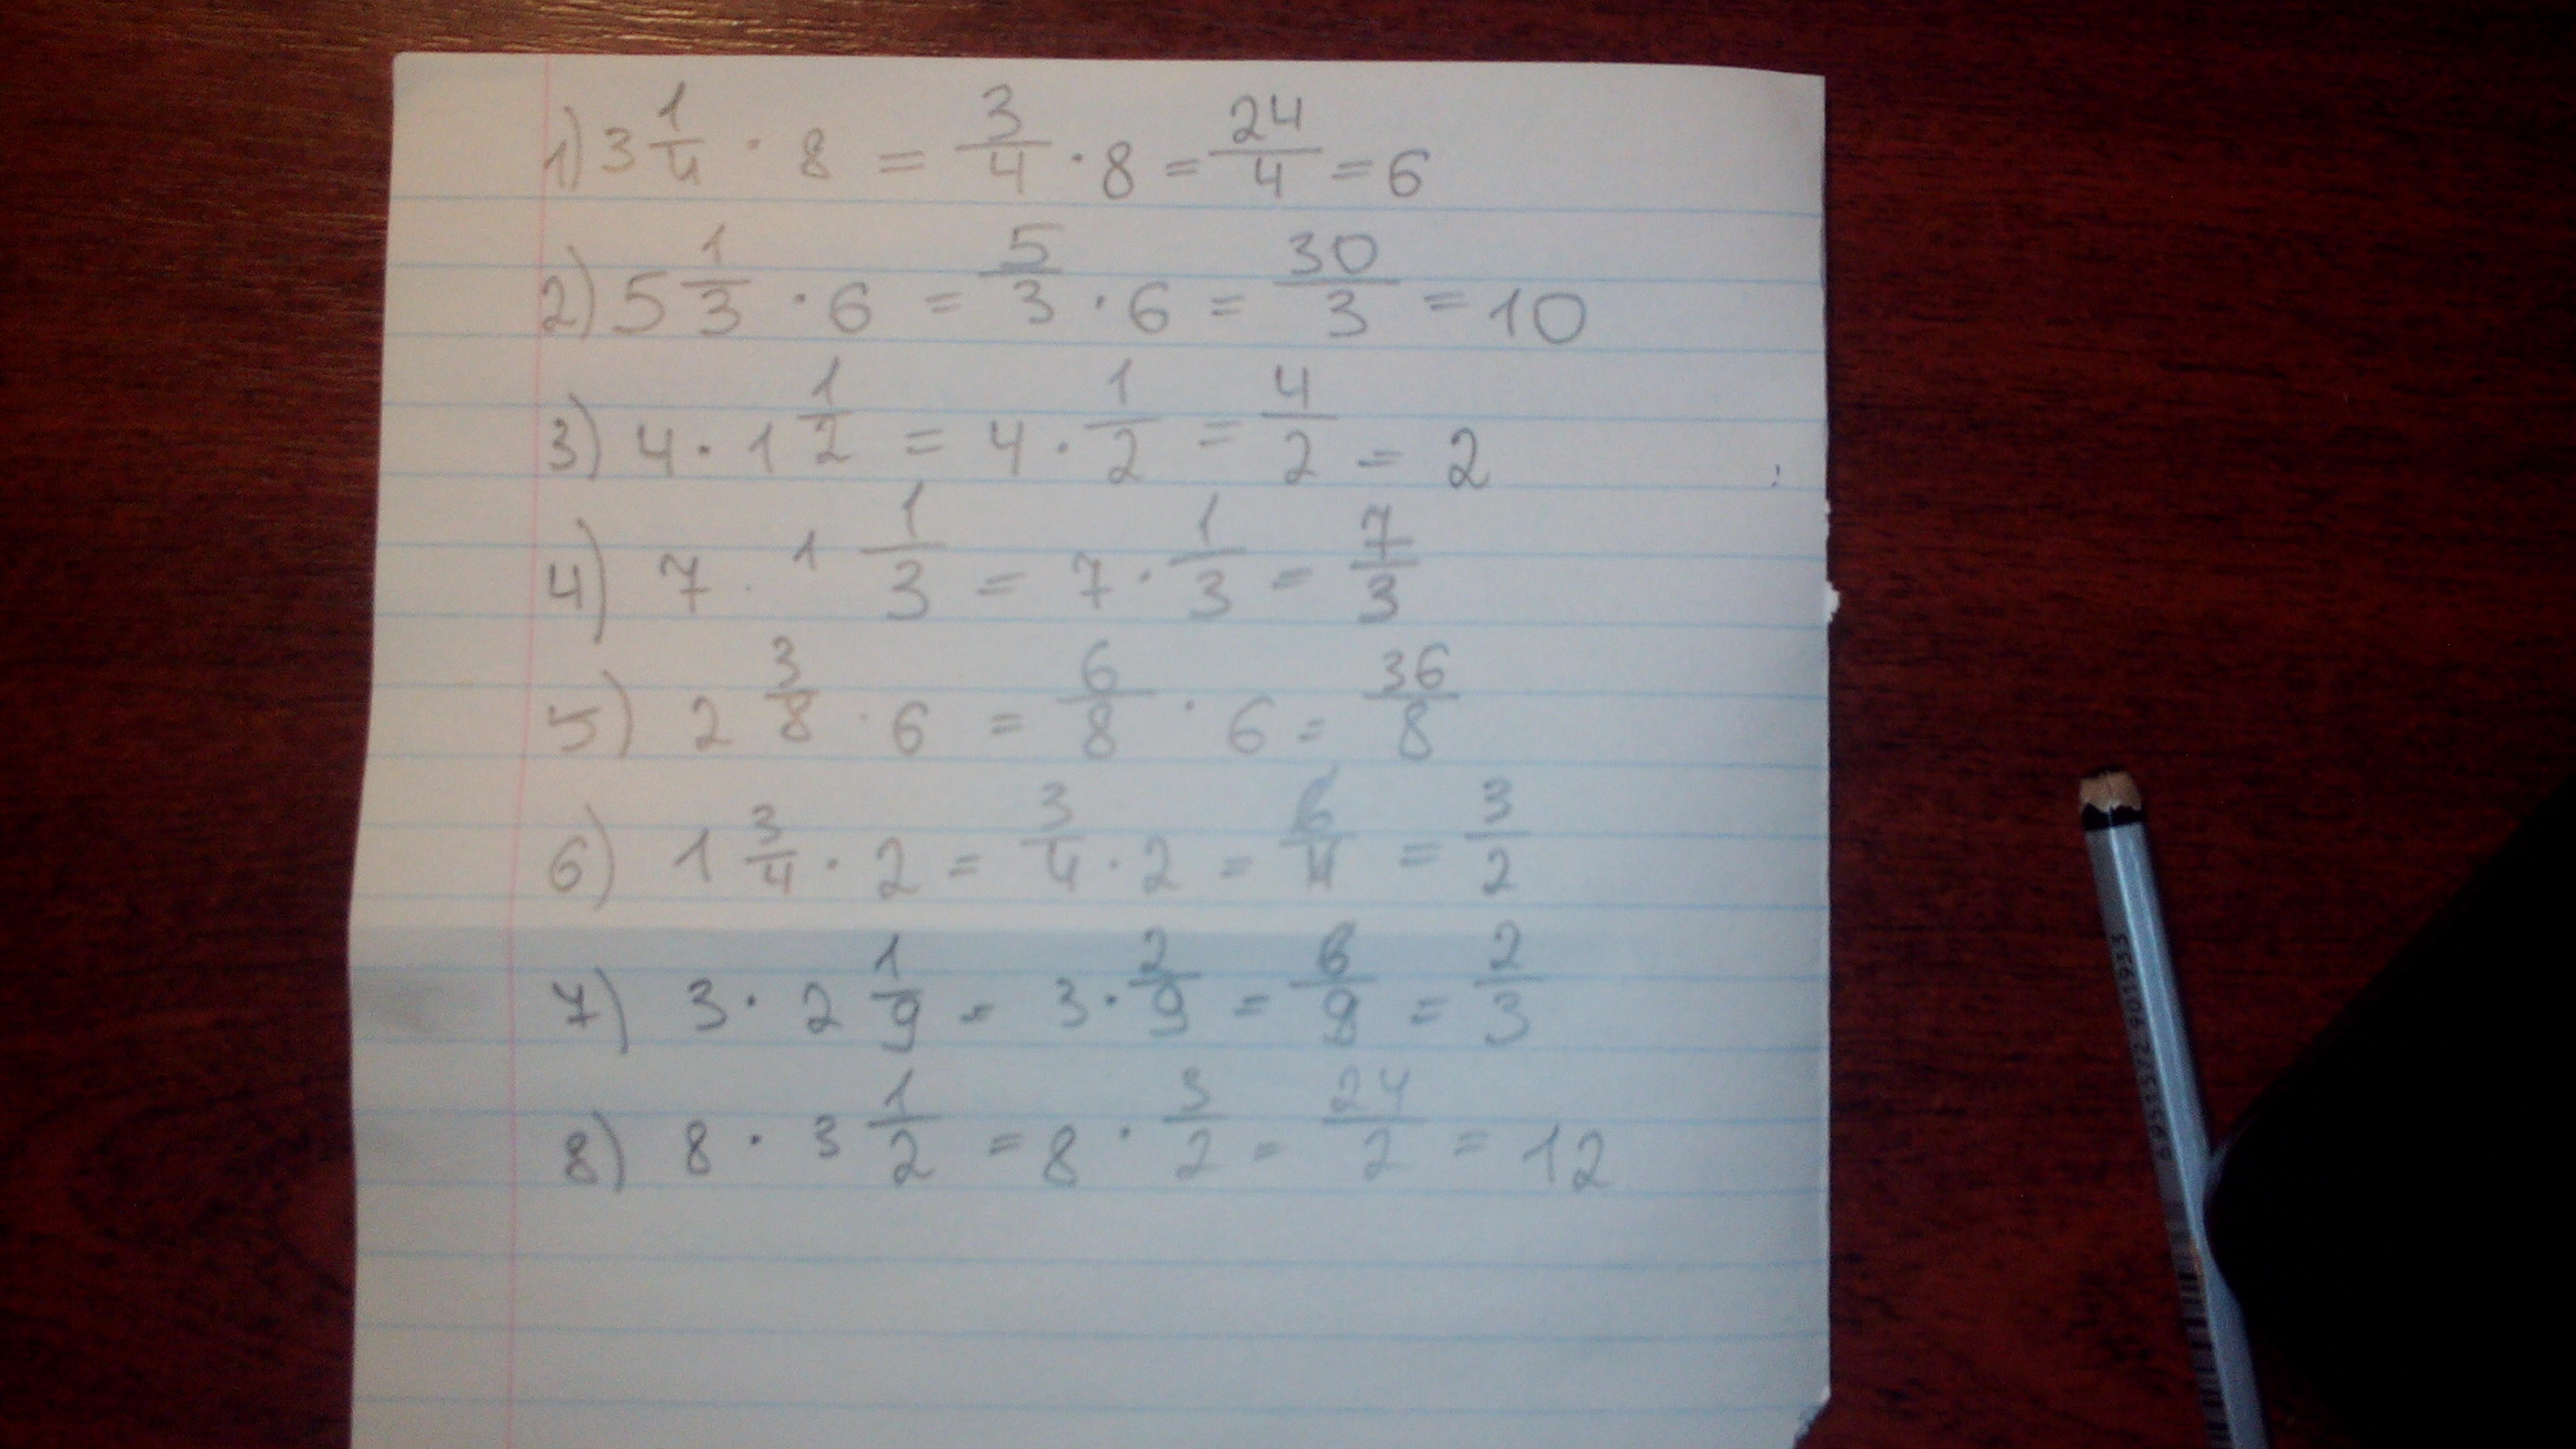 1) 3 1/4 · 8 = 3/4 · 8 = 24/4 = 6
2) 5 1/3 · 6 = 5/3 · 6 = 30/3 = 10
3) 4 · 1 1/2 = 4 · 1/2 = 4/2 = 2
4) 7 · 1 1/3 = 7 · 1/3 = 7/3
5) 2 3/8 · 6 = 6/8 · 6 = 36/8
6) 1 3/4 · 2 = 3/4 · 2 = 6/4 = 3/2
7) 3 · 2 1/9 = 3 · 2/9 = 6/9 = 2/3
8) 8 · 3 1/2 = 8 · 3/2 = 24/2 = 12